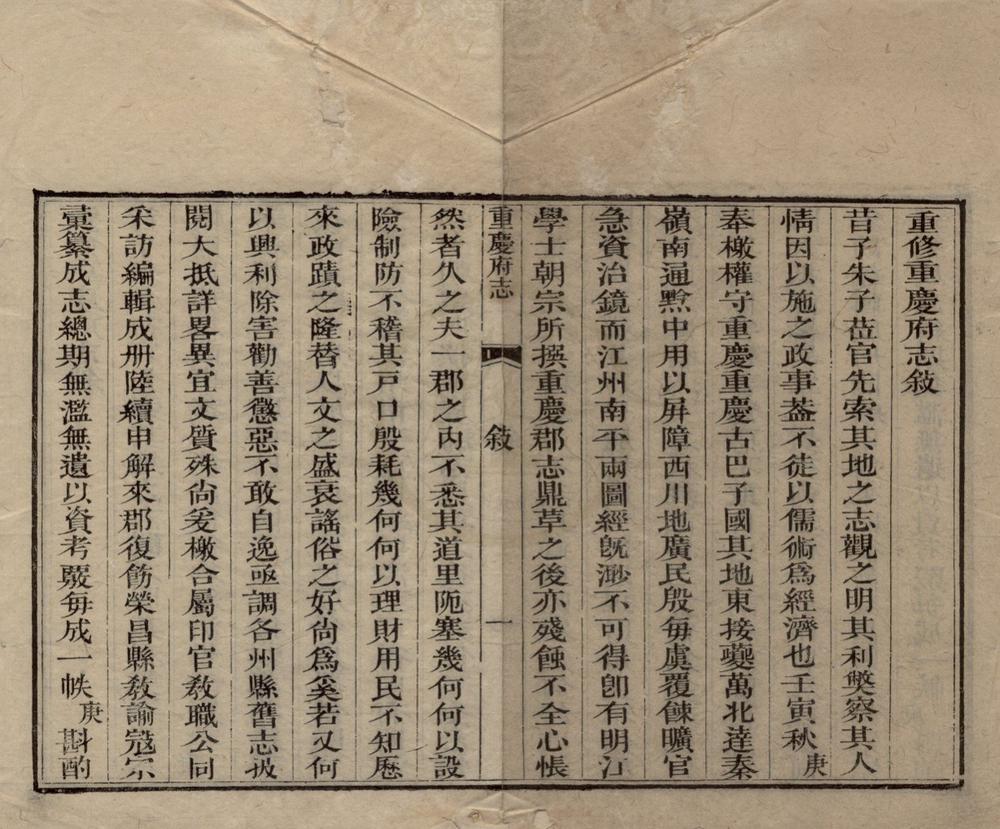 重修重慶府志敘
昔子朱子莅官先索其地之志觀之明其利獘察其人
情因以施之政事葢不徒以儒術爲經濟也壬寅秋庚
奉檄權守重慶重慶古巴子國其地東接夔萬北達秦
嶺南通黔中用以屏障西川地廣民殷每虞覆餗曠官
急資治鏡而江州南平兩圖經旣渺不可得卽有明江
學士朝宗所撰重慶郡志鼎草之後亦殘蝕不全心悵
重慶府志 敘 一
然者久之夫一郡之內不悉其道里阨塞幾何何以設
險制防不稽其戸口殷耗幾何何以理財用民不知歷
來政蹟之隆替人文之盛衰謠俗之好尙爲奚若又何
以興利除害勸善懲惡不敢自逸亟調各州縣舊志披
閱大抵詳畧異宜文質殊尙爰檄合屬印官敎職公同
采訪編輯成册陸續申解來郡復飭榮昌縣敎諭寇宗
彙纂成志總期無濫無遺以資考覈每成一帙庚斟酌